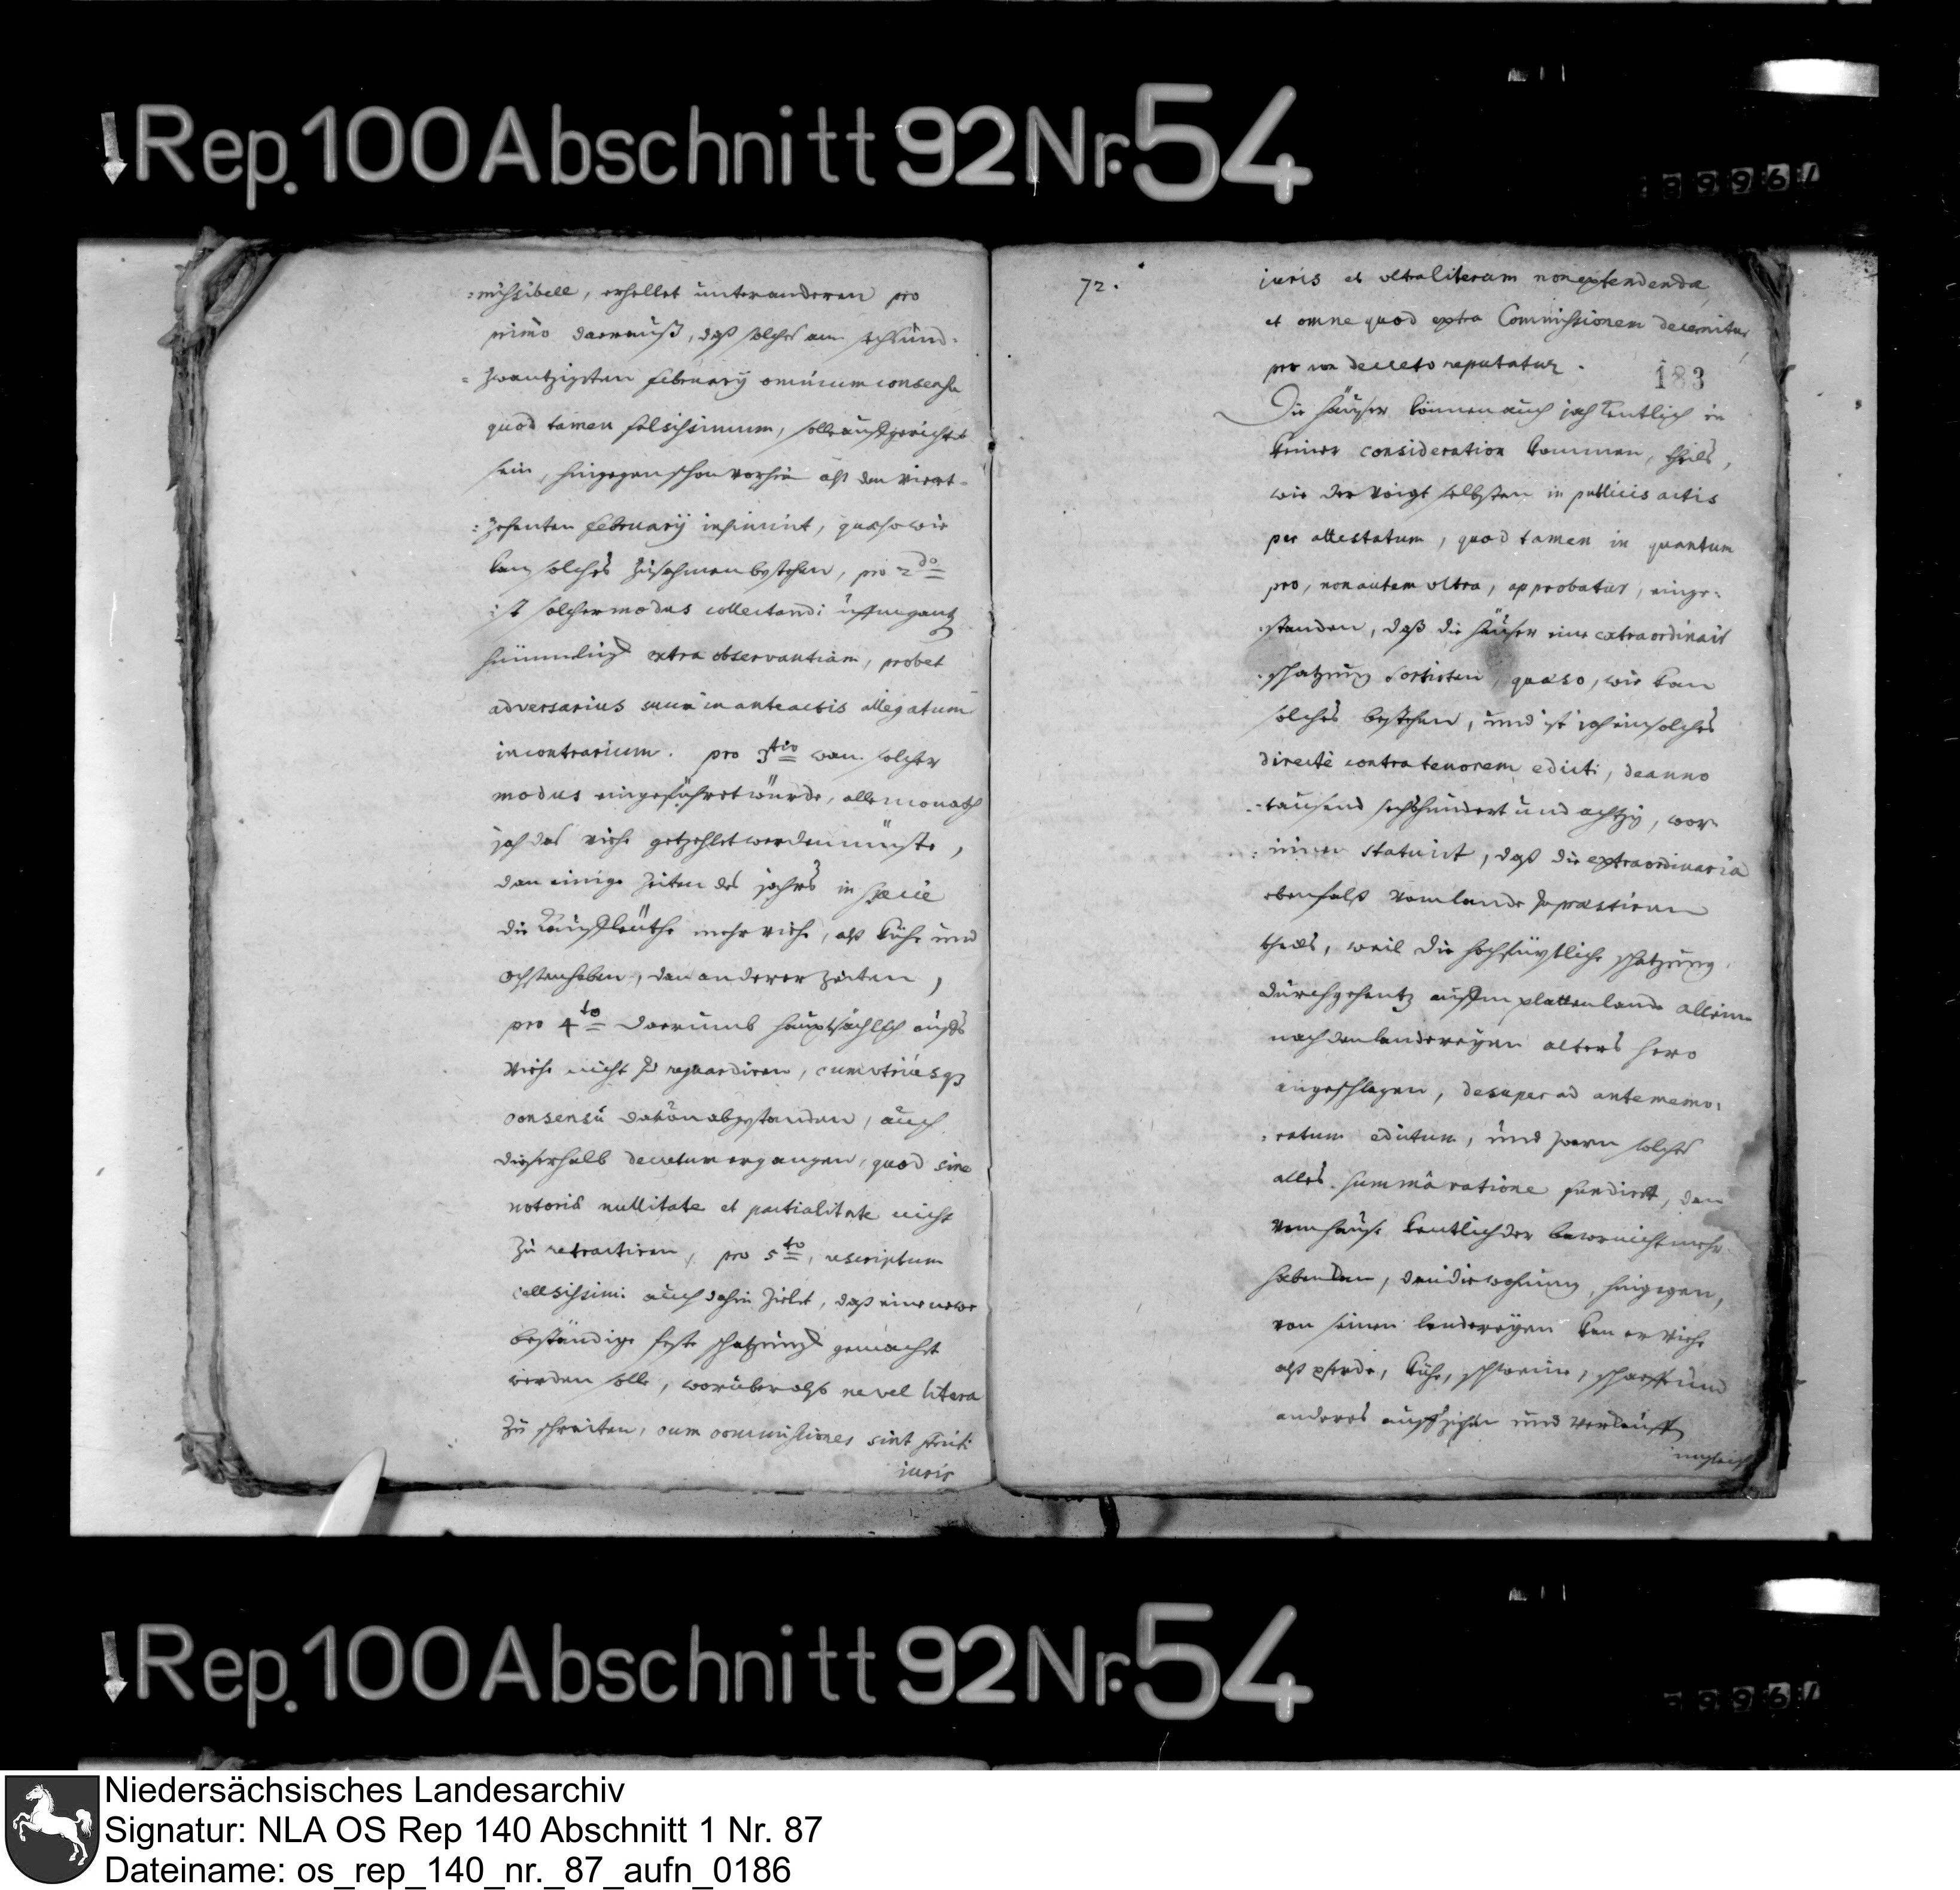 Rep. 100 Abschnitt 92 Nr. 54
:missibell, erhellet unteranderen pro
primo darauß, daß solches am acht und-
= zwantzigsten february omnium consensu
quod tamen falsissimum, solle außgerichtet
sein, hingegen schon vorhin alß den viert-
:zehenten february insinuirt, quaeso wie
kan solches zusahmen bestehen, pro 2do
ist solcher modus collectandi
extra observantiam, probet
adversarius suum in anteactis allegatum
in contrarium. pro 3tio wan solcher
modus eingeführet würde, alle monath
jah das viehe getzehlet werden müste,
dan einige zeiten des jahrs in specie
die haußleuthe mehr viehe, alß kühe und
ochsen haben, dan anderer zeiten,
pro 4to darumb hauptsächlich aufs
viehe nicht zu reguardiren, cum utriusq3
consensu davon abgestanden, auch
dieserhalb decretum ergangen, quod sine
notoria nullitate et partialitate nicht
zu retractiren, pro 5to, rescriptum
celsissimi auch dahin zielet, daß eine newe
beständige feste schatzung gemacht
werden solle, worüber alß ne vel litera
zu schreiten, cum commissiones sint stricti
juris
72.
juris et ultra literam non extendenda,
et omne quod extra Commissionem decernitur,
pro non decreto reputatur.
183
Die häuser können auch jah kentlich in
keiner consideration kommen, theils,
wie der Voigt selbsten in publicis actis
per attestatum, quod tamen in quantum
pro, non autem ultra, approbatur, einge-
:standen, daß die häuser eine extraordinair
:schatzung sortirten, quaeso, wie kan
solches bestehen, und ist jah ein solches
directe contra tenorem edicti, de anno
-tausend sechshundert und achtzig, wor-
:innen statuirt, daß die extraordinaria
ebenfalß vom lande zu praestiren
theils, weil die hochfürstliche schatzung
durchgehentz auffm platten lande allein
nach den landereyen alters hero
angeschlagen, desuper ad antememo-
:ratum edictum, und zwarn solches
alles summa ratione fundirt, dan
vom hause kentlich der bawr nicht mehr
haben kan, dan die wohnung, hingegen,
von seinen landereyen kan er viehe
alß pferde, kühe, schweine, schaeffe und
anderes auffziehen und verkauffen
imgleich
Rep. 100 Abschnitt 92 Nr. 54
Niedersächsisches Landesarchiv
Signatur: NLA OS Rep 140 Abschnitt 1 Nr. 87
Dateiname: os_rep_140_nr._87_aufn_0186